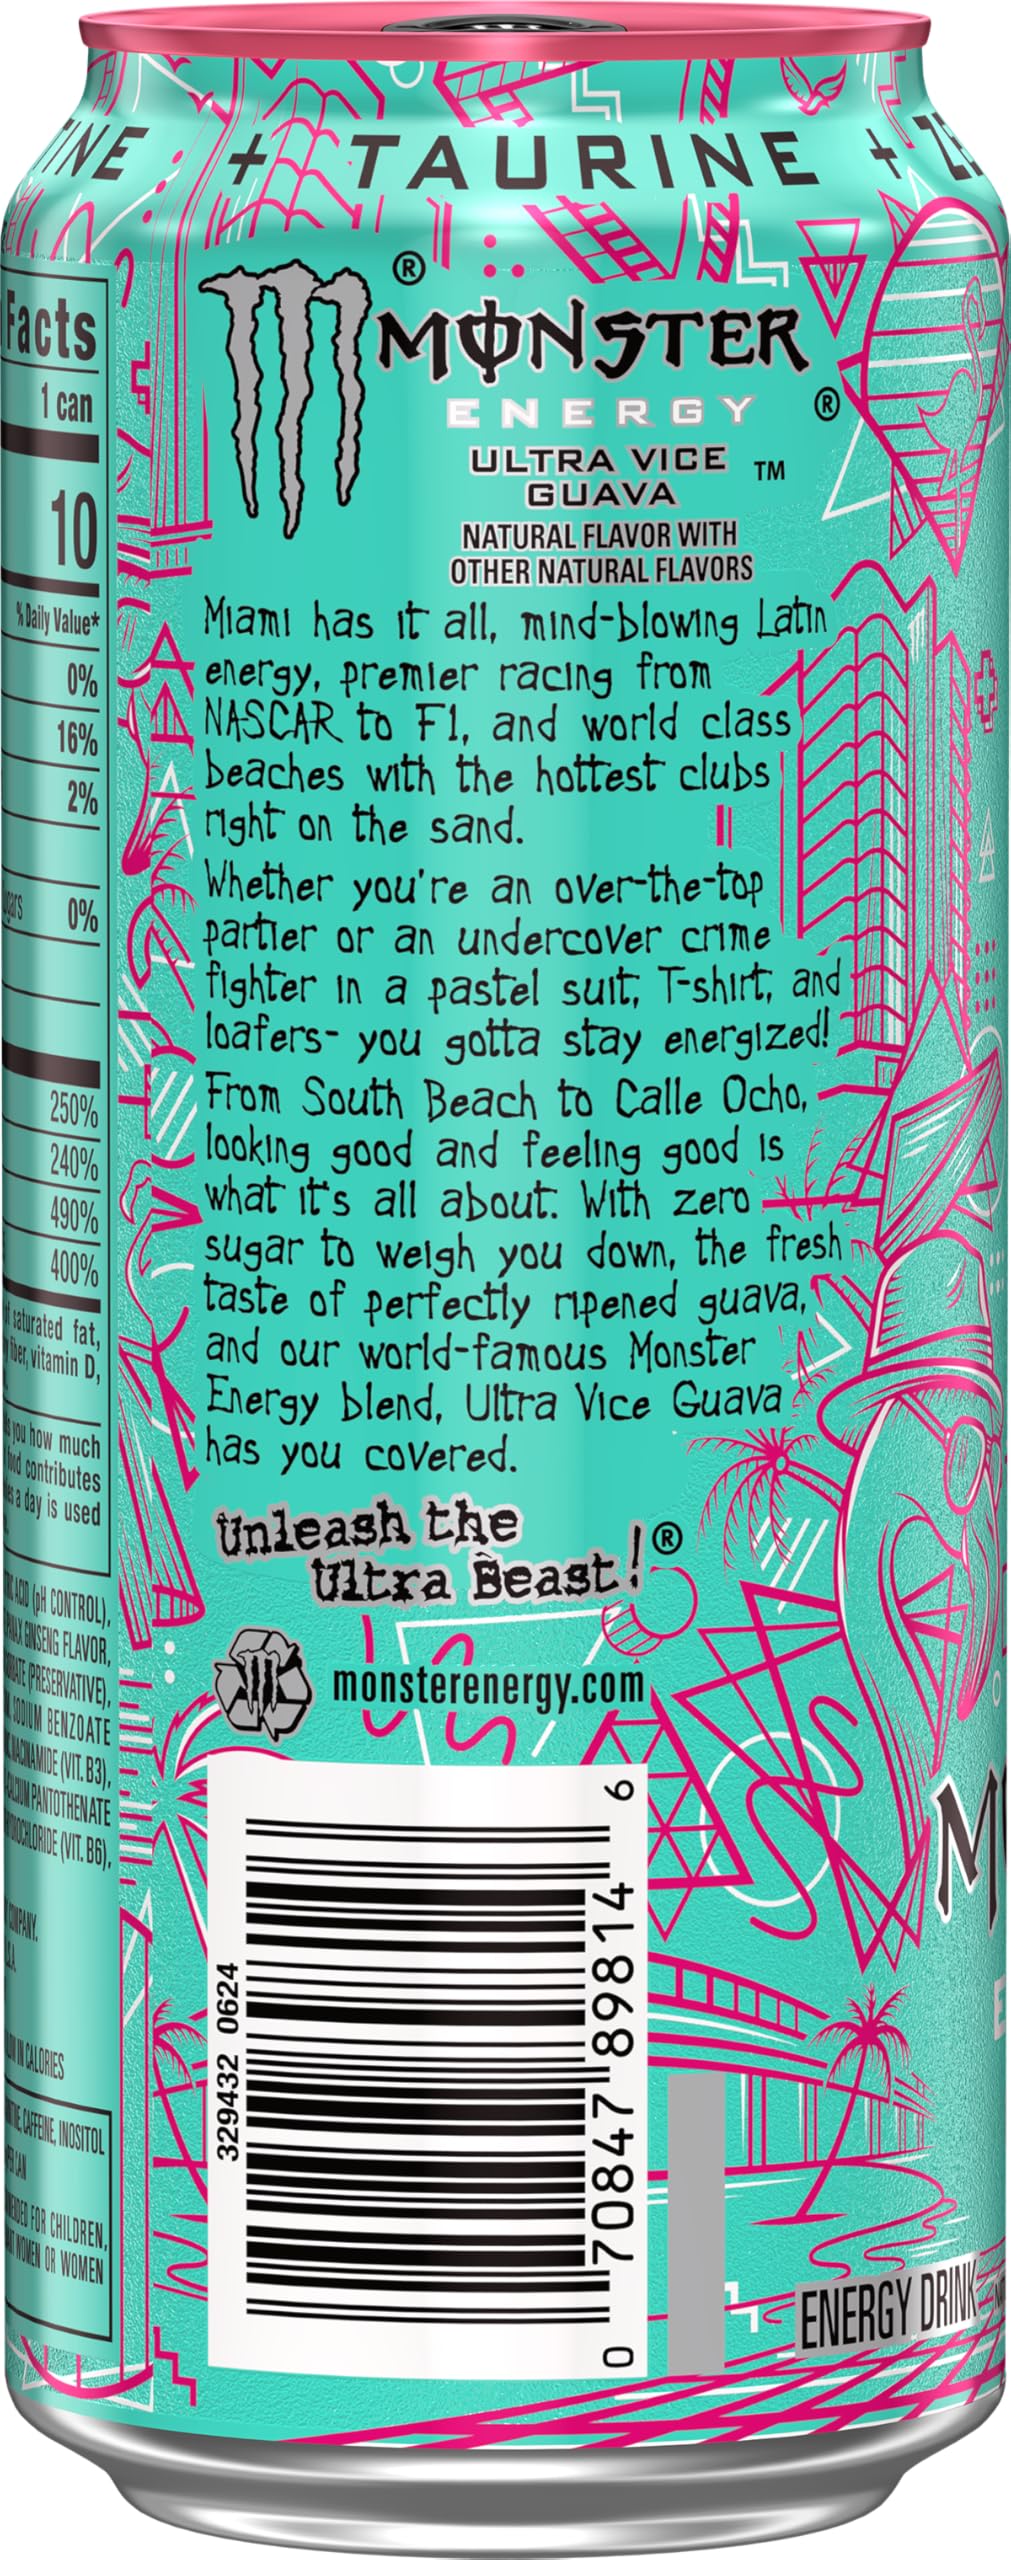 TINE + TAURINE + ZE
Facts
1 can
10
% Daily Value*
0%
16%
2%
0%
250%
240%
490%
400%
of saturated fat,
fiber, vitamin D,
you how much
food contributes
a day is used
ACID (pH CONTROL),
PANAX GINSENG FLAVOR,
(PRESERVATIVE),
SODIUM BENZOATE
NIACINAMIDE (VIT. B3),
CALCIUM PANTOTHENATE
HYDROCHLORIDE (VIT. B6),
COMPANY.
LOW IN CALORIES
CAFFEINE, INOSITOL
PER CAN
FOR CHILDREN,
WOMEN OR WOMEN
®
MONSTER
ENERGY ®
ULTRA VICE ™
GUAVA
NATURAL FLAVOR WITH
OTHER NATURAL FLAVORS
Miami has it all, mind-blowing Latin
energy, premier racing from
NASCAR to F1, and world class
beaches with the hottest clubs
right on the sand.
Whether you're an over-the-top
partier or an undercover crime
fighter in a pastel suit, T-shirt, and
loafers- you gotta stay energized!
From South Beach to Calle Ocho,
looking good and feeling good is
what it's all about. With zero
sugar to weigh you down, the fresh
taste of perfectly ripened guava,
and our world-famous Monster
Energy blend, Ultra Vice Guava
has you covered.
Unleash the
Ultra Beast!®
monsterenergy.com
329432 0624
0 70847 89814 6
M
E
ENERGY DRINK